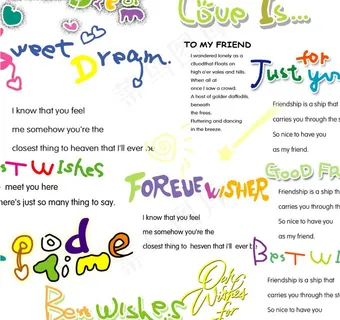 Dream
Love Is...
Sweet Dream.
TO MY FRIEND
I wandered lonely as a
cloudthat Floats on
high o'er vales and hills.
When all at
once I saw a crowd.
A host of golden daffodils.
beneath
the frees.
Fluttering and dancing
in the breeze.
Just for
you
I know that you feel
me somehow you're the
closest thing to heaven that I'll ever be
Friendship is a ship that
carries you through the s
So nice to have you
as my friend.
EST WISHES
meet you here
There's just so many thing to say.
FOREUE WISHER
GOOD FR
Friendship is a ship that
carries you through the
So nice to have you
as my friend.
I know that you feel
me somehow you're the
closest thing to heven that I'll ever b
BEST WI
Friendship is a ship that
carries you through the st
So nice to have you
as my friend.
Best Wishes
Best
Wishes
for